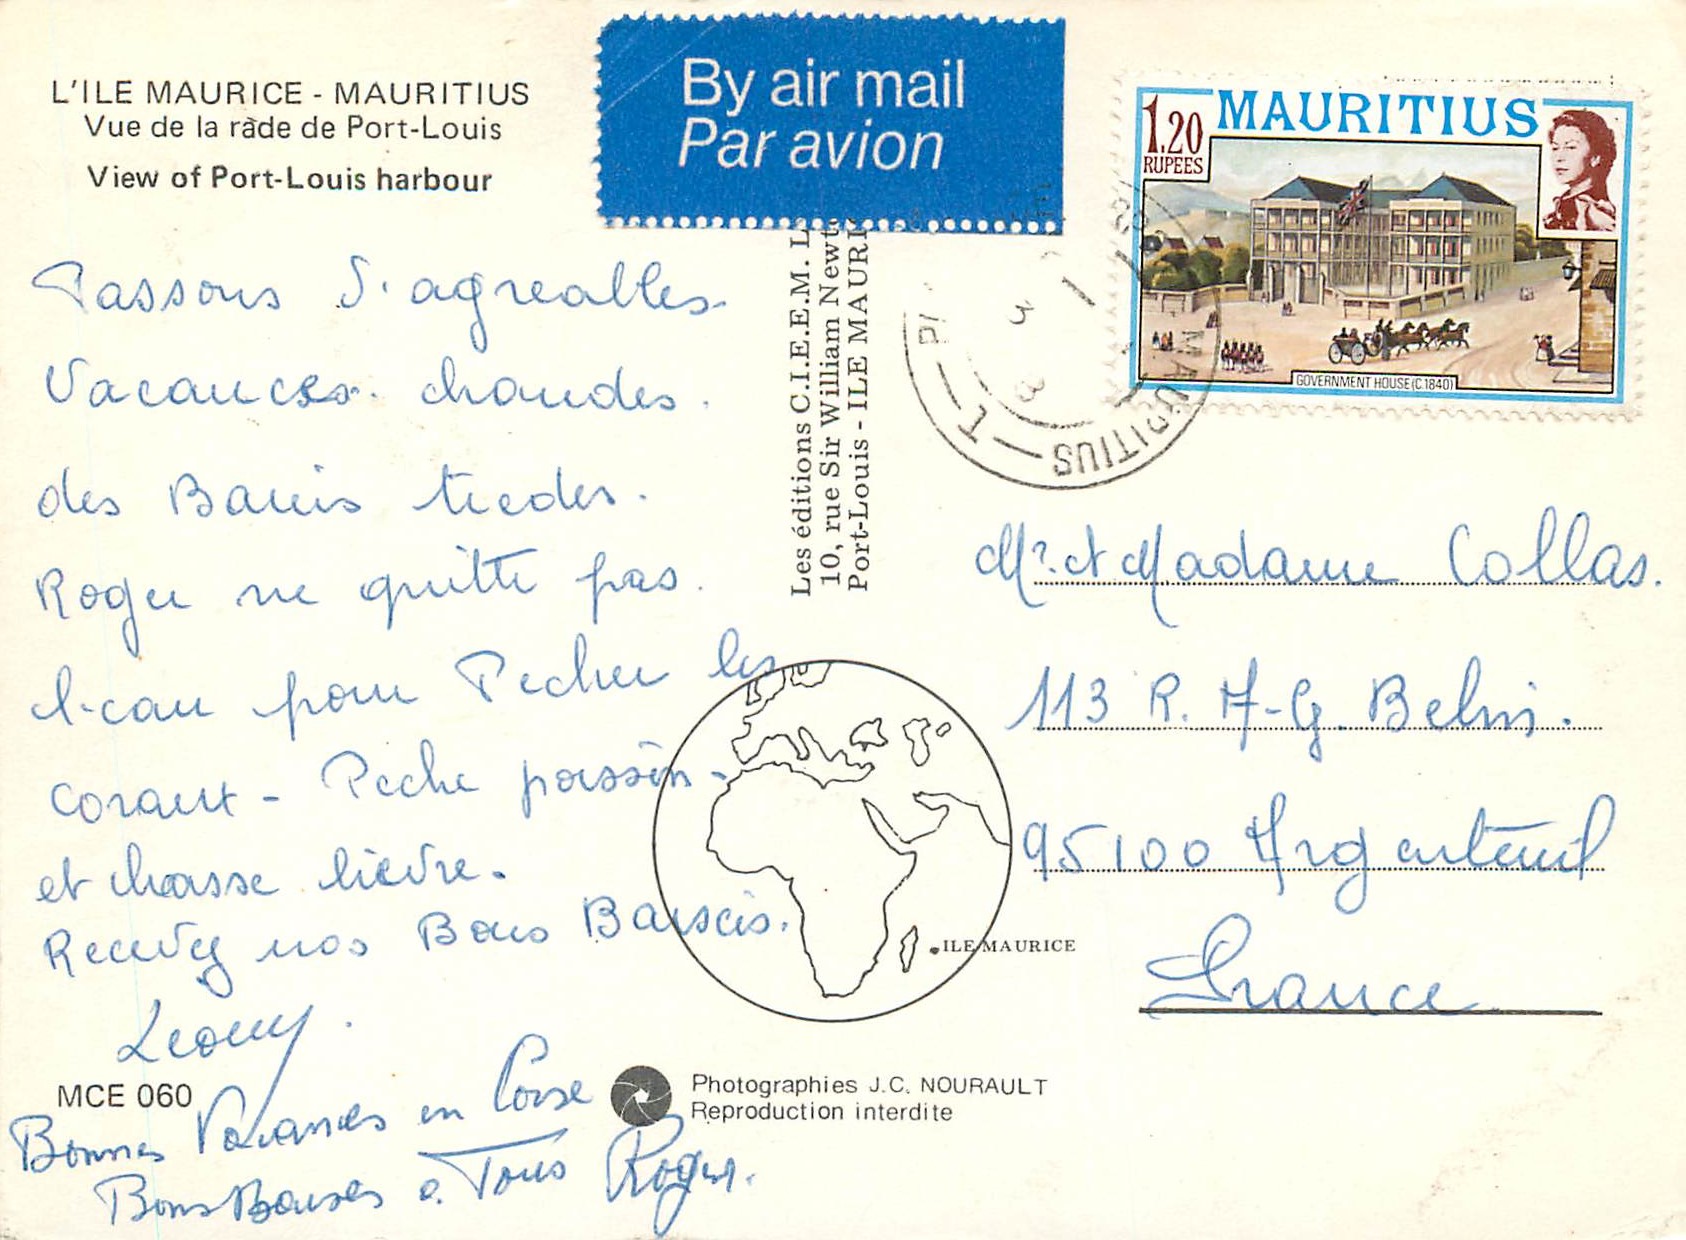 L'ILE MAURICE - MAURITIUS
Vue de la rade de Port-Louis
View of Port-Louis harbour
By air mail
Par avion
MAURITIUS
1.20
RUPEES
GOVERNMENT HOUSE (C.1840)
MAURITIUS
Passons d'agreables
Vacances. chaudes.
des Bains tiedes.
Roger ne quitte pas.
l'eau pour Pecher les
coraux - Peche poisson -
et chasse lièvre.
Recevez nos Bons Baisers.
Bonnes Vacances en Corse
Bons Baisers a Tous Roger.
MCE 060
Les éditions C.I.E.E.M. L
10, rue Sir William Newt
Port-Louis - ILE MAURI
ILE MAURICE
Photographies J.C. NOURAULT
Reproduction interdite
Mr. et Madame Collas.
113 R. A-G. Belin.
95100 Argenteuil
France